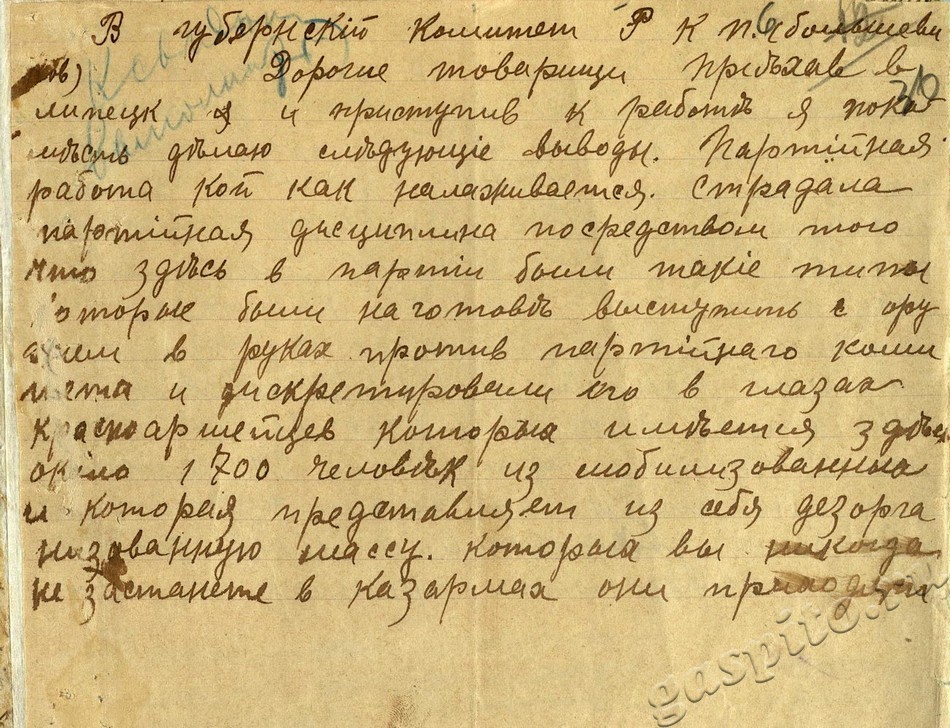 В губернский Комитет Р К П. (большеви
ков) Дорогие товарищи Пріѣхав в
липецк я и приступив к работѣ я пока
мѣсть дѣлаю слѣдующіе выводы. Партійная
работа кой как налаживается. Страдала
партійная дисциплина посредством того
что здѣсь в партіи были такіе типы
которые были наготовѣ выступить с ору
жием в руках против партійнаго коми
тета и дискретировали его в глазах
Красноармейцев которых имѣется здѣсь
около 1700 человѣк из мобилизованных
и которая представляет из себя дезорга
низованную массу. которых вы никогда
не застанете в казармах они приходят
gaspito.ru